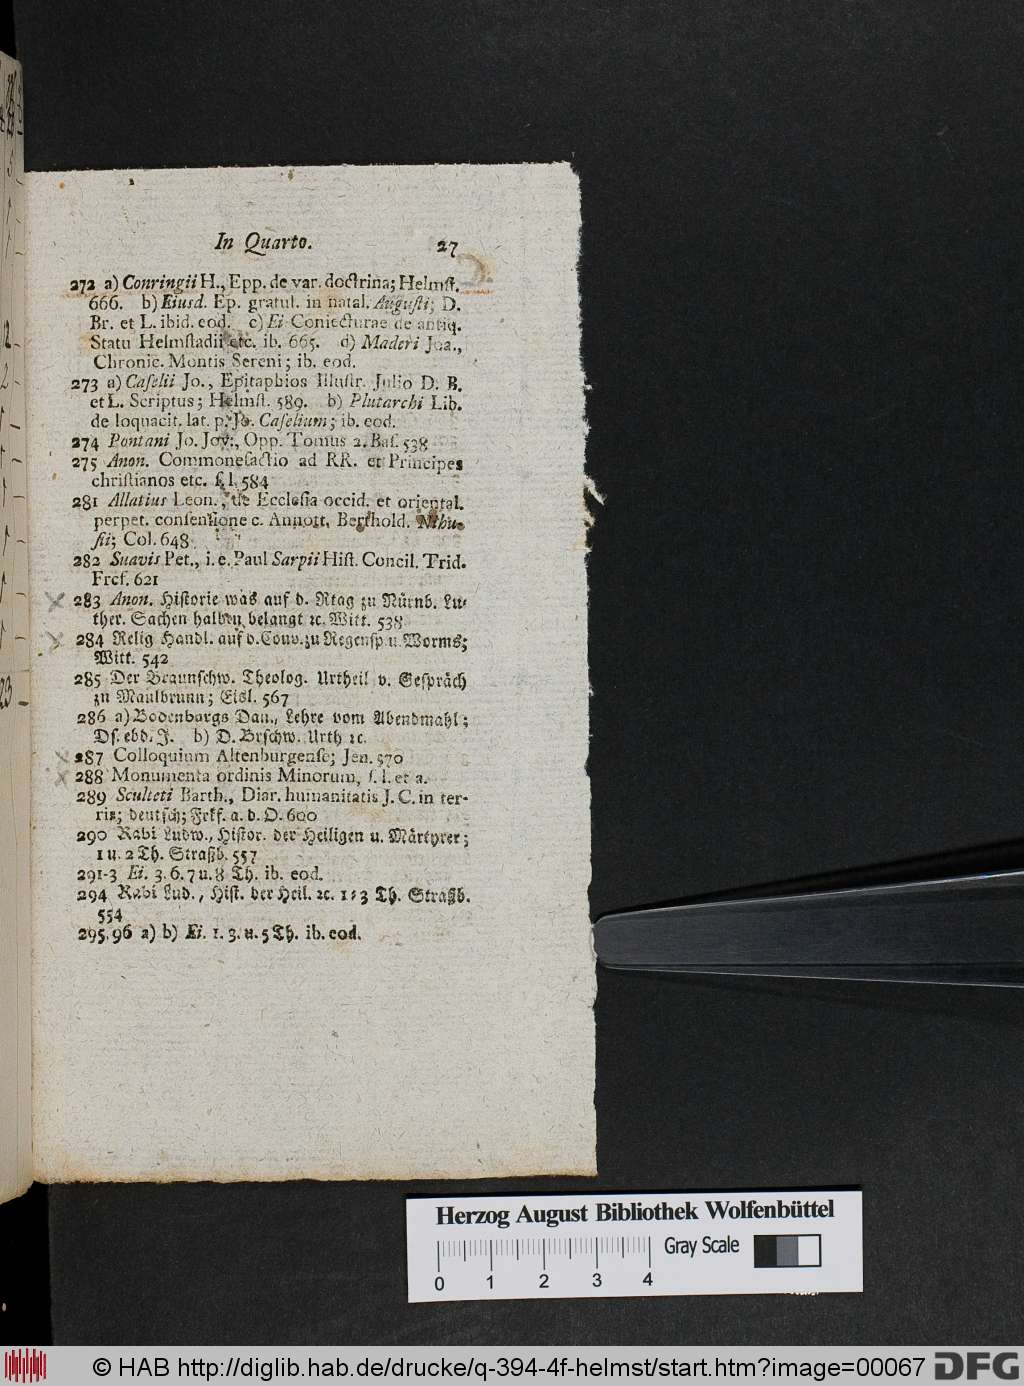 In Quarto. 27
272 a) Conringii H., Epp. de var. doctrina; Helmst.
666. b) Eiusd. Ep. gratul. in natal. Augusti; D.
Br. et L. ibid. eod. c) Ei Coniecturae de antiq.
Statu Helmstadii etc. ib. 665. d) Maderi Joa.,
Chronic. Montis Sereni; ib. eod.
273 a) Caselii Jo., Epitaphios Illustr. Julio D. B.
et L. Scriptus; Helmst. 589. b) Plutarchi Lib.
de loquacit. lat. p. Jo. Caselium; ib. eod.
274 Pontani Jo. Jov., Opp. Tomus 2. Bas. 538
275 Anon. Commonefactio ad RR. et Principes
christianos etc. s. l. 584
281 Allatius Leon., de Ecclesia occid. et oriental.
perpet. consensione c. Annott. Berthold. Nihu-
sii; Col. 648
282 Suavis Pet., i. e. Paul Sarpii Hist. Concil. Trid.
Frcf. 621
283 Anon. Historie was auf d. Rtag zu Nürnb. Lu-
ther. Sachen halben belangt ꝛc. Witt. 538
284 Relig Handl. auf d. Conv. zu Regensp u. Worms;
Witt. 542
285 Der Braunschw. Theolog. Urtheil v. Gespräch
zu Maulbrunn; Eisl. 567
286 a) Bodenburgs Dan., Lehre vom Abendmahl;
Ds. ebd. J. b) D. Brschw. Urth ꝛc.
287 Colloquium Altenburgense; Jen. 570
288 Monumenta ordinis Minorum, s. l. et a.
289 Sculteti Barth., Diar. humanitatis J. C. in ter-
ris; deutsch; Frkf. a. d. O. 600
290 Rabi Ludw., Histor. der Heiligen u. Märtyrer;
1 u. 2 Th. Straßb. 557
291-3 Ei. 3. 6. 7 u. 8 Th. ib. eod.
294 Rabi Lud., Hist. der Heil. ꝛc. 1-3 Th. Straßb.
554
295. 96 a) b) Ei. 1. 3. u. 5 Th. ib. eod.
Herzog August Bibliothek Wolfenbüttel
Gray Scale
0 1 2 3 4
© HAB http://diglib.hab.de/drucke/q-394-4f-helmst/start.htm?image=00067 DFG